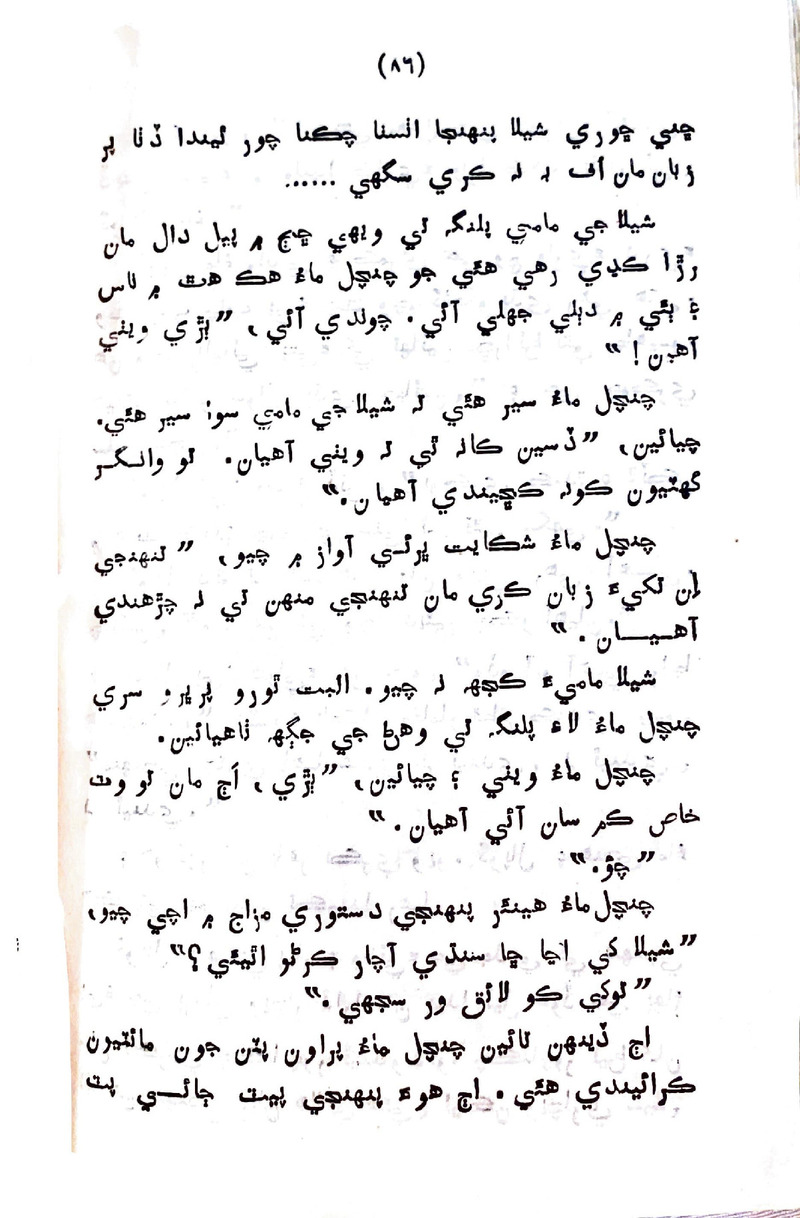 (۸٦)
چني چوري شيلا پنهنجا انسنا چڪنا چور ٿيندا ڏٺا پر
زبان مان اُف بہ نہ ڪري سگهي ......
شيلا جي مامي پلنگہ تي ويهي ڇڄ ۾ پيل دال مان
رڙا ڪڍي رهي هئي جو چنچل ماءُ هڪ هٿ ۾ ناس
۽ ٻئي ۾ دٻلي جهلي آئي. چوندي آئي، ”ٻڙي ويٺي
آهين! “
چنچل ماءُ سير هئي تہ شيلا جي مامي سوا سير هئي.
چيائين، ”ڏسين ڪانہ ٿي تہ ويٺي آهيان. تو وانگر
گهٽيون ڪونہ ڪڇيندي آهيان.“
چنچل ماءُ شڪايت ڀرئي آواز ۾ چيو، ”تنهنجي
اِن تکيءَ زبان ڪري مان تنهنجي منهن تي نہ چڙهندي
آهيان. “
شيلا ماميءَ ڪڇهہ نہ چيو. البت ٿورو پريرو سري
چنچل ماءُ لاءِ پلنگہ تي وهڻ جي جڳهہ ٺاهيائين.
چنچل ماءُ ويٺي ؛ چيائين، ”ٻڙي، اَڄ مان تو وٽ
خاص ڪم سان آئي آهيان. “
”چؤ.“
چنچل ماءُ هينئر پنهنجي دستوري مزاج ۾ اچي چيو،
”شيلا کي اڃا ڇا سنڌي آچار ڪرڻو اٿيئي؟“
”توکي ڪو لائق ور سجهي .“
اڄ ڏينهن تائين چنچل ماءُ پراون پٽن جون مائٽيون
ڪرائيندي هئي. اڄ هوءَ پنهنجي پيٽ ڄائي پٽ